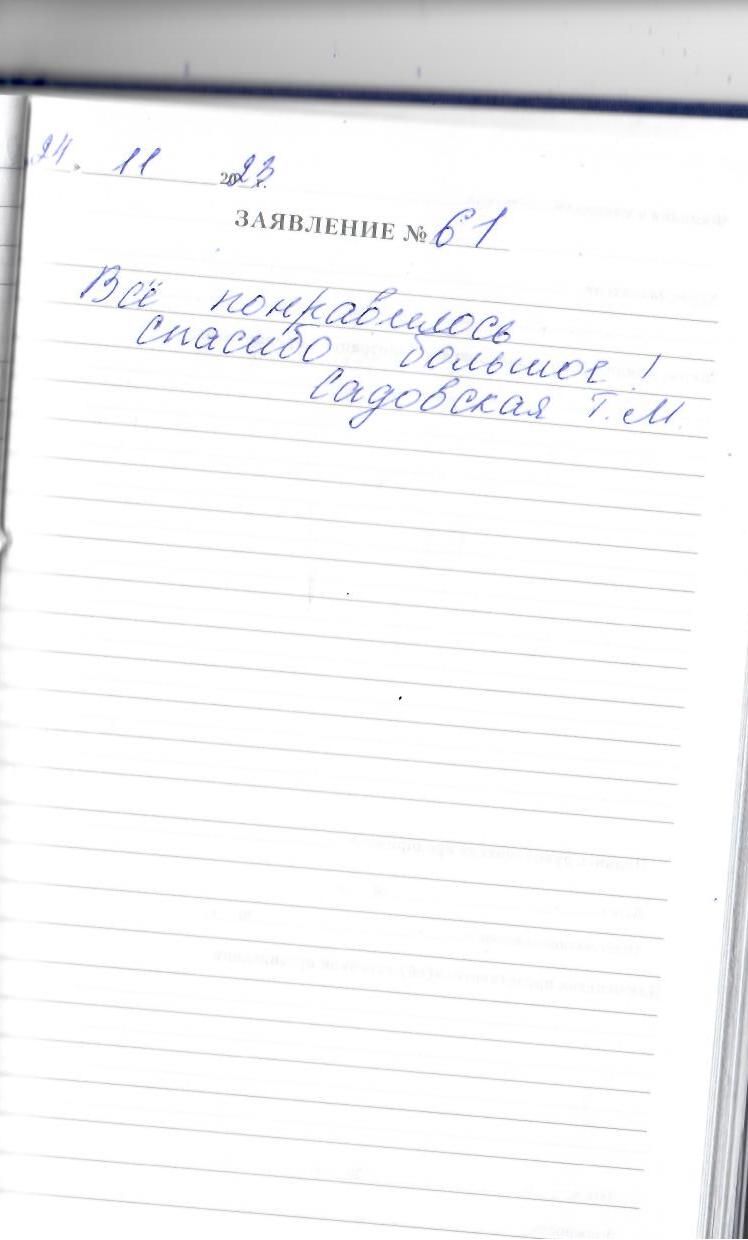 24. 11 2023 г.
ЗАЯВЛЕНИЕ № 61
Всё понравилось
спасибо большое!
Садовская Т.М.